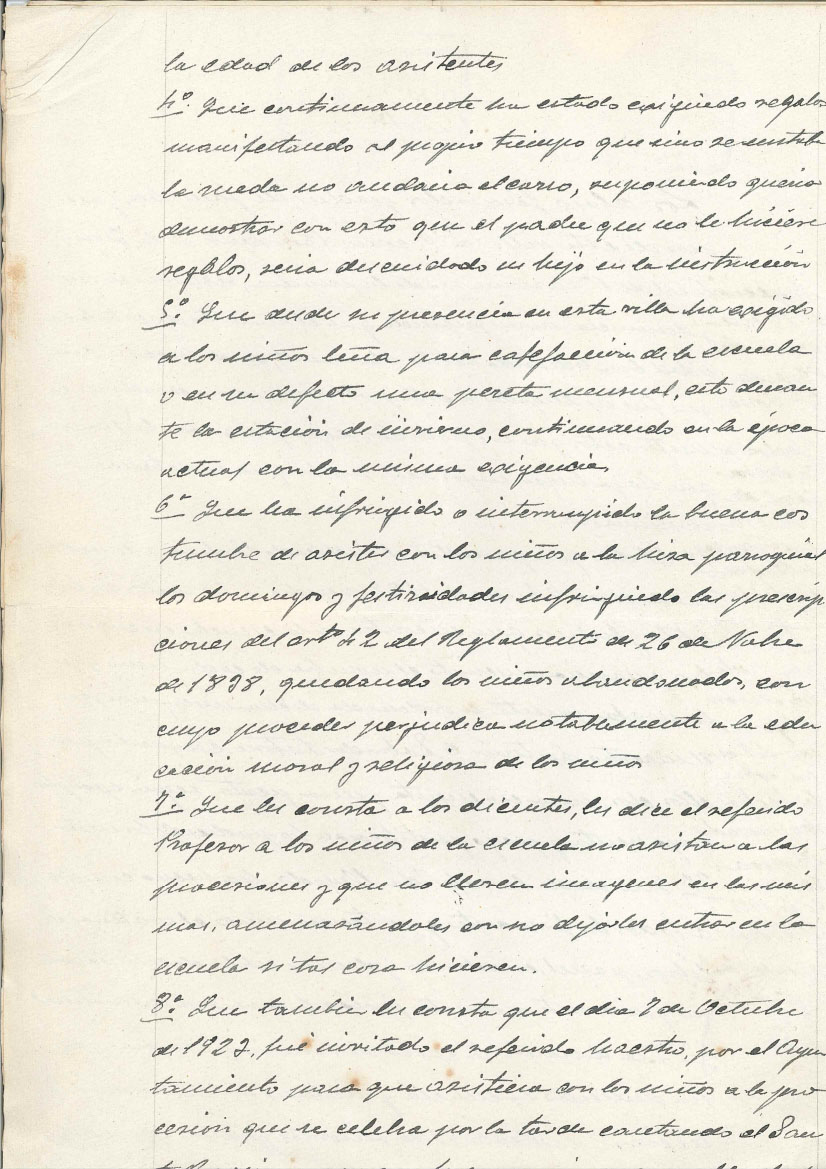 la edad de los asistentes
4º. Que continuamente ha estado exigiendo regalos
manifestando al propio tiempo que sino se untaba
la rueda no andaria el carro, suponiendo queria
demostrar con esto que el padre que no le hiciere
regalos, seria descuidado su hijo en la instrucción
5º. Que desde su presencia en esta villa ha exigido
a los niños leña para calefacción de la escuela
o en su defecto una peseta mensual, esto duran
te la estación de invierno, continuando en la época
actual con la misma exigencia
6ª Que ha infringido o interrumpido la buena cos
tumbre de asistir con los niños a la misa parroquial
los domingos y festividades infringiendo las prescrip
ciones del artº 42 del Reglamento de 26 de Nobre
de 1838, quedando los niños abandonados, con
cuyo proceder perjudica notablemente a la edu
cación moral y religiosa de los niños
7ª Que les consta a los dicentes, les dice el referido
Profesor a los niños de la escuela no asistan a las
procesiones y que no lleven imagenes en las mis
mas, amenazándoles con no dejarles entrar en la
escuela si tal cosa hiciesen.
8ª Que tambien les consta que el dia 7 de Octubre
de 1923, fué invitado el referido Maestro, por el Ayun
tamiento para que asistiera con los niños a la pro
cesión que se celebra por la tarde cantando el San